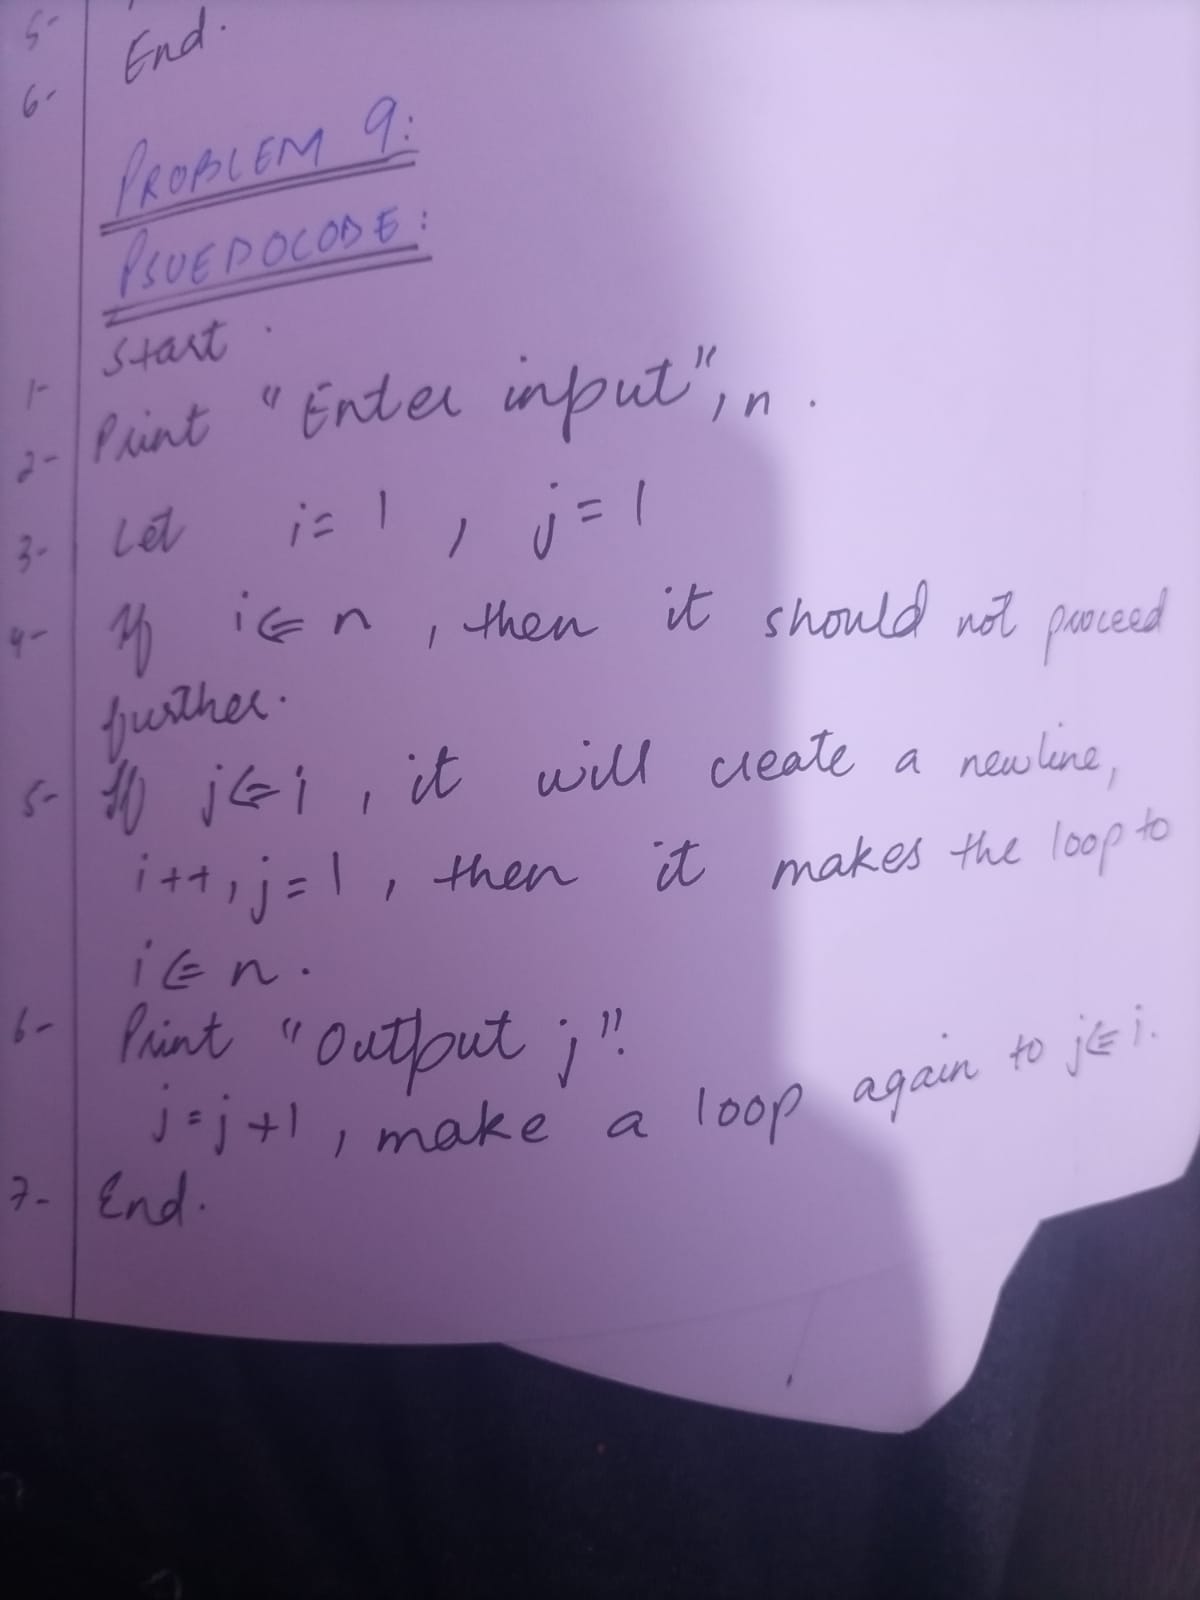 5-
End.
6-
PROBLEM 9:
PSUEDOCODE:
Start.
1-
2- Print "Enter input", n.
3- Let i=1, j=1
4- If i⩽n, then it should not proceed
further.
5- If j⩽i, it will create a newline,
i++, j=1, then it makes the loop to
i⩽n.
6- Print "Output j".
j=j+1, make a loop again to j⩽i.
7- End.